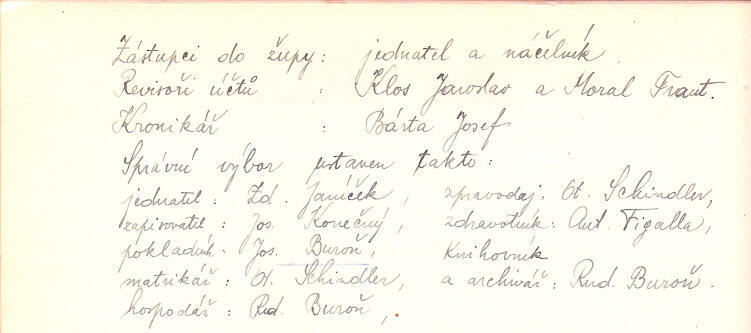 Zástupci do župy: jednatel a náčelník.
Revisoři účtů : Klos Jaroslav a Moral Frant.
Kronikář : Bárta Josef
Správní výbor ustaven takto:
jednatel: Zd. Janíček, zpravodaj: Ot. Schindler,
zapisovatel: Jos. Konečný, zdravotník: Ant. Figalla,
pokladník: Jos. Buroň, knihovník
matrikář: Ot. Schindler, a archivář: Rud. Buroň.
hospodář: Rud. Buroň,